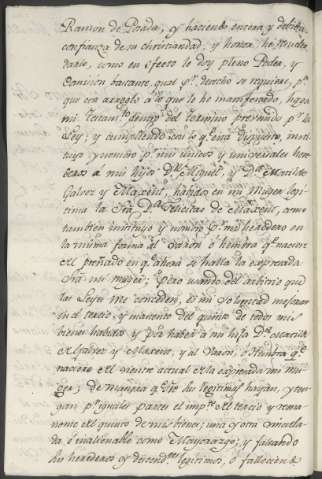 Ramon de Posada, y haciendo entera y debida
confianza de su christiandad, y honor, he
darle, como en efecto le doy pleno Poder, y
Comision bastante, qual pr. derecho se requiere, pa.
que con arreglo a lo que le he manifestado, haga
mi testamto. dentro del termino prefinido pr. la
Ley; y cumpliendo con lo q.e está dispuesto, insti-
tuyo y nombro pr. mis unicos y universales here-
deros a mis hijos Dn. Miguel, y Da. Matilde
Galvez y Maxent, habidos en mi Muger legi-
tima la Sra. Da. Felicitas de Maxent, como
tambien instituyo y nombro pr. mi heredero en
la misma forma al Varon ò hembra q.e naciere
del preñado en q.e ahora se halla la expresada
Sra. mi muger; Pero usando del arbitrio que
las Leyes me conceden, es mi voluntad mejorar
en el tercio, y remanente del quinto de todos mis
bienes habidos y por haber à mi hija Da. Matilde
de Galvez y Maxent, y al Varon, ò Hembra q.e
naciere del vientre actual de la expresada mi mu-
ger; de manera q.e
gan pr. iguales partes el del tercio y rema-
nente del quinto de mis bienes; una y otra
ò enalienable como Mayorazgo; y faltando
hu herederos y descendtes. legitimos, ò falleciendo